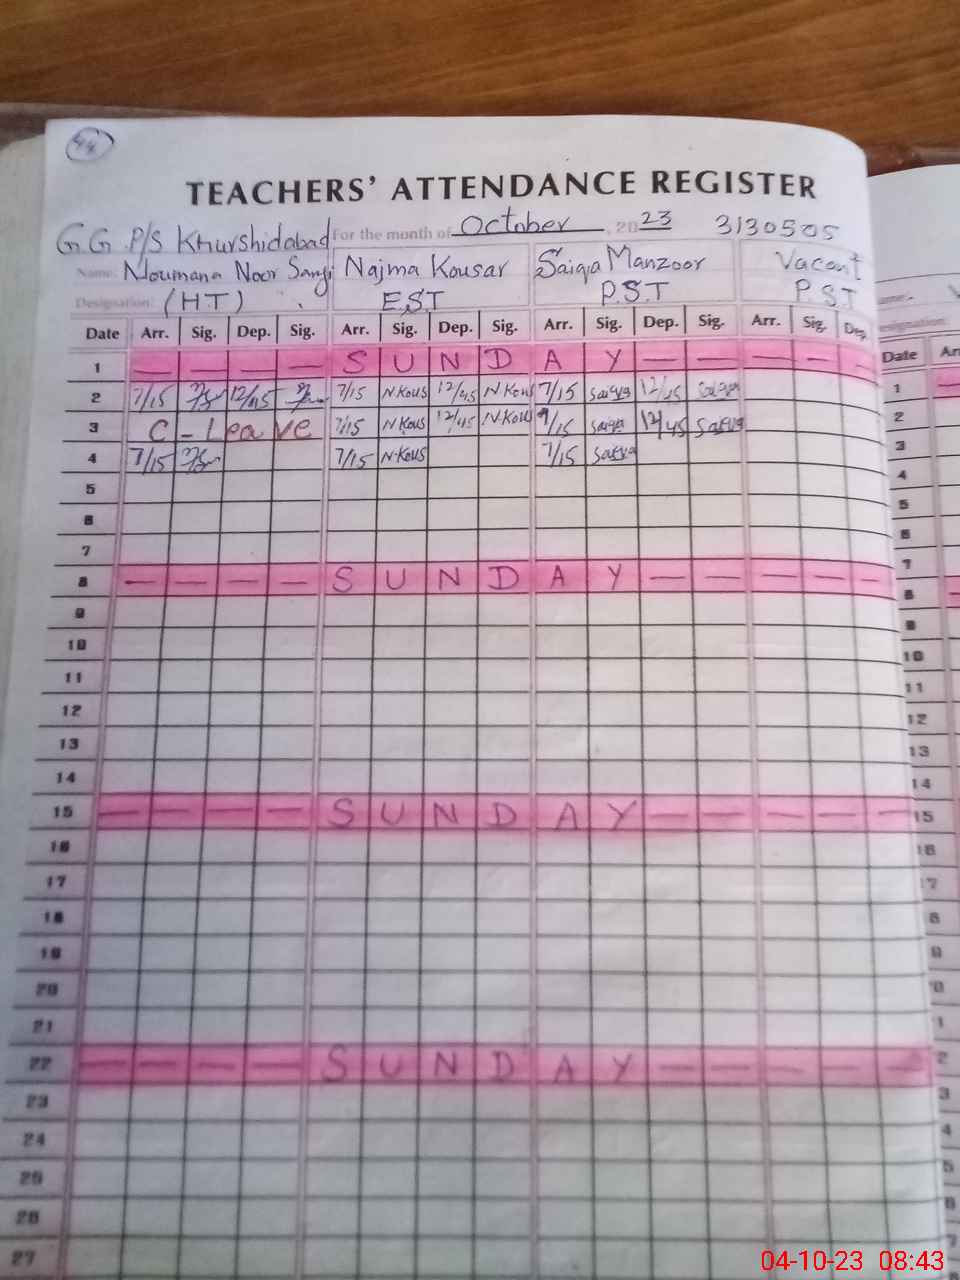 44
TEACHERS' ATTENDANCE REGISTER
G.G P/S Khurshidabad For the month of October, 2023 3130505
Name: Noumana Noor Najma Kousar Saiqa Manzoor Vacant
Designation: (HT) E.S.T P.S.T P.S.T
Date Arr. Sig. Dep. Sig. Arr. Sig. Dep. Sig. Arr. Sig. Dep. Sig. Arr. Sig. Dep. Date Arr
1 — — — — S U N D A Y — — — — — 1
2 7/15 12/45 7/15 N Kous 12/45 N Kous 7/15 Saiqa 12/45 Saiqa 2
3 C - Leave 7/15 N Kous 12/45 N Kous 7/15 Saiqa 12/45 Saiqa 3
4 7/15 7/15 N Kous 7/15 Saiqa 4
5 5
6 6
7 7
8 — — — — S U N D A Y — — — — — 8
9 9
10 10
11 11
12 12
13 13
14 14
15 — — — — S U N D A Y — — — — — 15
16 16
17 7
18 8
19 9
20 0
21 1
22 — — — — S U N D A Y — — — — — 2
23 3
24 4
25 5
26 6
27 7
04-10-23 08:43